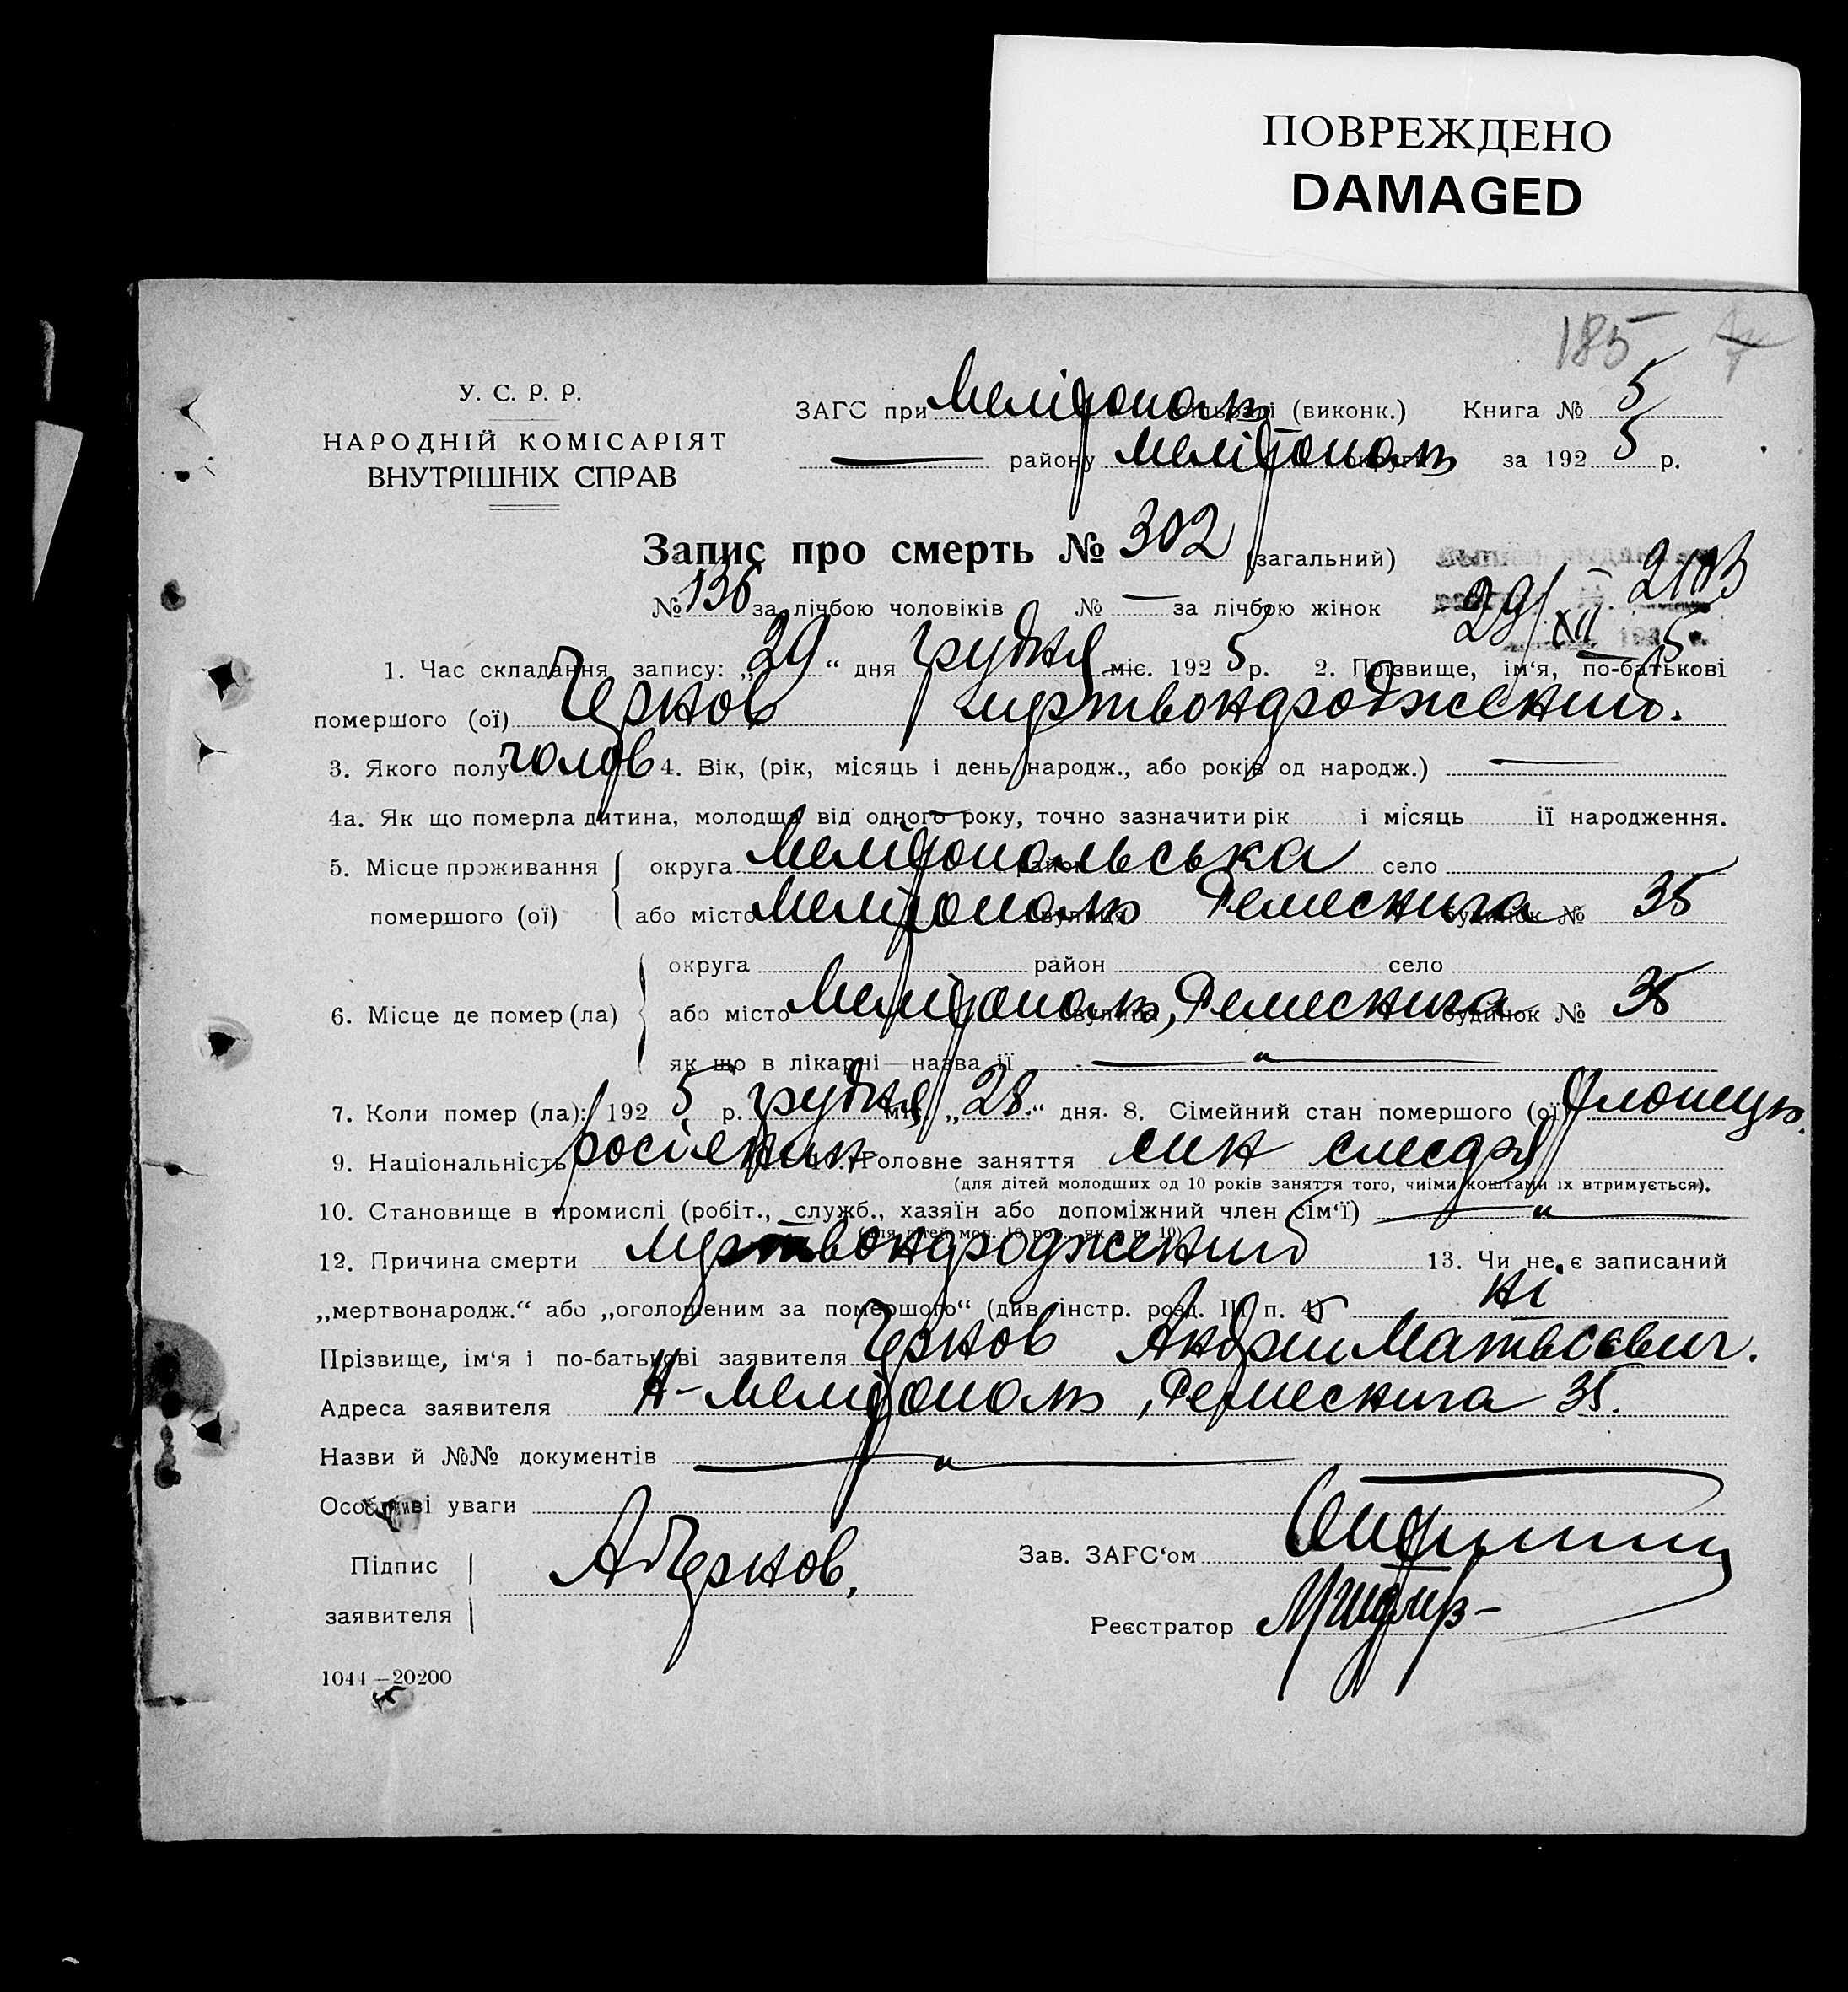 ПОВРЕЖДЕНО
DAMAGED
185
У. С. Р. Р.
НАРОДНІЙ КОМІСАРІЯТ
ВНУТРІШНІХ СПРАВ
ЗАГС при Мелітополь (виконк.) Книга № 5
— району Мелітополь округи за 192 5 р.
Запис про смерть № 302 (загальний)
№ 136 за лічбою чоловіків № — за лічбою жінок
2103
29/XII 5
1. Час складання запису: „29“ дня грудня міс. 192 5 р. 2. Прізвище, ім‘я, по-батькові
помершого (ої) Чернов мертвонароджений.
3. Якого полу чолов 4. Вік, (рік, місяць і день народж., або років од народж.) —
4а. Як що померла дитина, молодща від одного року, точно зазначити рік і місяць її народження.
5. Місце проживання помершого (ої) округа Мелітопольська район село
або місто Мелітополь вулиця Ремеснича будинок № 35
6. Місце де помер (ла) округа район село
або місто Мелітополь, вулиця Ремеснича будинок № 35
як що в лікарні—назва її — „ —
7. Коли помер (ла): 192 5 р. грудня міс. „28“ дня. 8. Сімейний стан помершого (ої) хлопець.
9. Національність росіянин Головне заняття син слюсаря
(для дітей молодших од 10 років заняття того, чиїми коштами їх втримується).
10. Становище в промислі (робіт., служб., хазяїн або допоміжний член сім‘ї) — „ —
12. Причина смерти мертвонароджений 13. Чи не є записаний
„мертвонародж.“ або „оголошеним за помершого“ (див. інстр. розд. III п. 4) ні
Прізвище, ім‘я і по-батькові заявителя Чернов Андрій Матвієвич.
Адреса заявителя Н-Мелітополь, Ремеснича 35.
Назви й №№ документів — „ —
Особливі уваги
Підпис заявителя А Чернов.
Зав. ЗАГС‘ом
Реєстратор
1044—20200